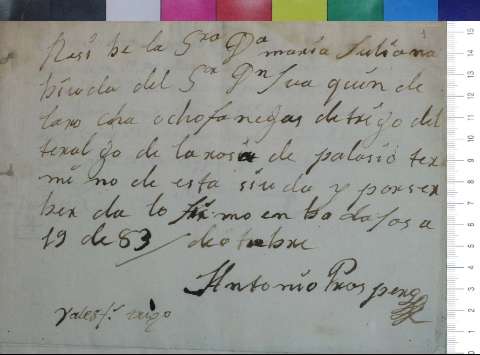 Resi be la Sra Da maria Juliana
biuda del Sor Dn Jua quin de
laro cha ocho fanegas de trigo del
teralgo de la rosa de palasio ter
mi no de esta siuda y por ser
ber da lo firmo en badasos a
19 de 83 de otubre
Antonio Prospero
Vale 8 fs. trigo
1